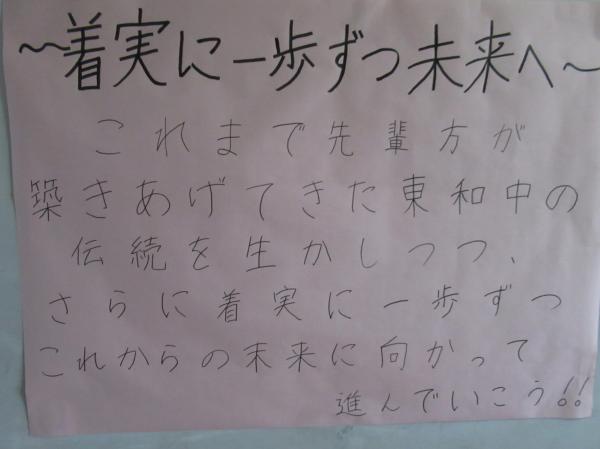 ～着実に一歩ずつ未来へ～
これまで先輩方が
築きあげてきた東和中の
伝続を生かしつつ、
さらに着実に一歩ずつ
これからの未来に向かって
進んでいこう!!